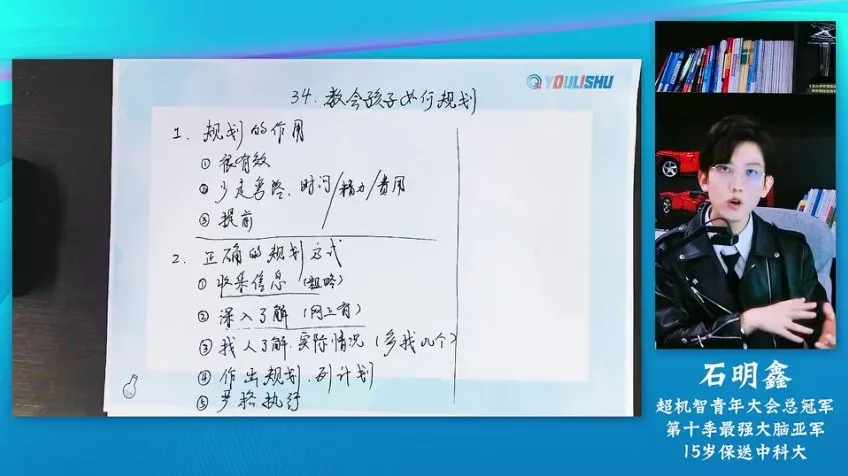 YOULISHU
34. 教会孩子如何规划
1. 规划的作用
① 很有效
② 少走弯路. 时间/精力/费用
③ 提前
2. 正确的规划方式
① 收集信息 (粗略)
② 深入了解 (网上有)
③ 找人了解实际情况 (多找几个)
④ 作出规划. 列计划
⑤ 严格执行
石明鑫
超机智青年大会总冠军
第十季最强大脑亚军
15岁保送中科大